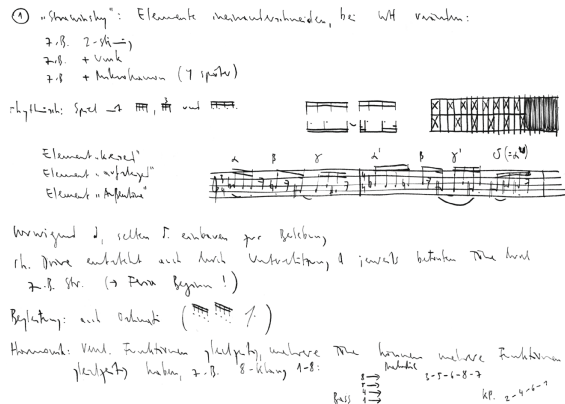 ① "Strawinsky": Elemente ineinanderschneiden, bei WH variieren:
z.B. 2-stimmig
z.B. + Umk
z.B. + Mikrokanon (Y später)
rhythmisch: Spiel mit und
α β γ α' β γ' δ (=α
Element "kreisend"
Element "aufsteigend"
Element
Vorwiegend ♩, selten einbauen zur Belebung
rh. Drive entsteht auch durch Unterstützung d jeweils betonten Töne durch
z.B. Str. (→ Feria Beginn!)
Begleitung: auch Ostinati ( )
Harmonik: Funktionen gleichzeitig, mehrere Töne können mehrere Funktionen
gleichzeitig haben, z.B. 8-Klang 1-8:
Melodie
8 → 3-5-6-8-7
5 →
4 →
Bass 1 → KP. 2-4-6-7